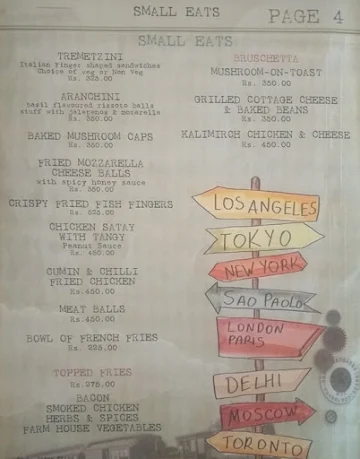 SMALL EATS
PAGE 4
SMALL EATS
TREMETZINI
Italian Finger shaped sandwiches
Choice of veg or Non Veg
Rs. 325.00
ARANCHINI
basil flavoured rissoto balls
stuff with jalepnos & mozarella
Rs. 350.00
BAKED MUSHROOM CAPS
Rs. 350.00
FRIED MOZZARELLA
CHEESE BALLS
with spicy honey sauce
Rs. 350.00
CRISPY FRIED FISH FINGERS
Rs. 525.00
CHICKEN SATAY
WITH TANGY
Peanut Sauce
Rs. 450.00
CUMIN & CHILLI
FRIED CHICKEN
Rs. 450.00
MEAT BALLS
Rs. 450.00
BOWL OF FRENCH FRIES
Rs. 225.00
TOPPED FRIES
Rs. 275.00
BACON
SMOKED CHICKEN
HERBS & SPICES
FARM HOUSE VEGETABLES
BRUSCHETTA
MUSHROOM-ON-TOAST
Rs. 350.00
GRILLED COTTAGE CHEESE
& BAKED BEANS
Rs. 350.00
KALIMIRCH CHICKEN & CHEESE
Rs. 450.00
LOS ANGELES
TOKYO
NEW YORK
SAO PAOLO
LONDON
PARIS
DELHI
MOSCOW
TORONTO